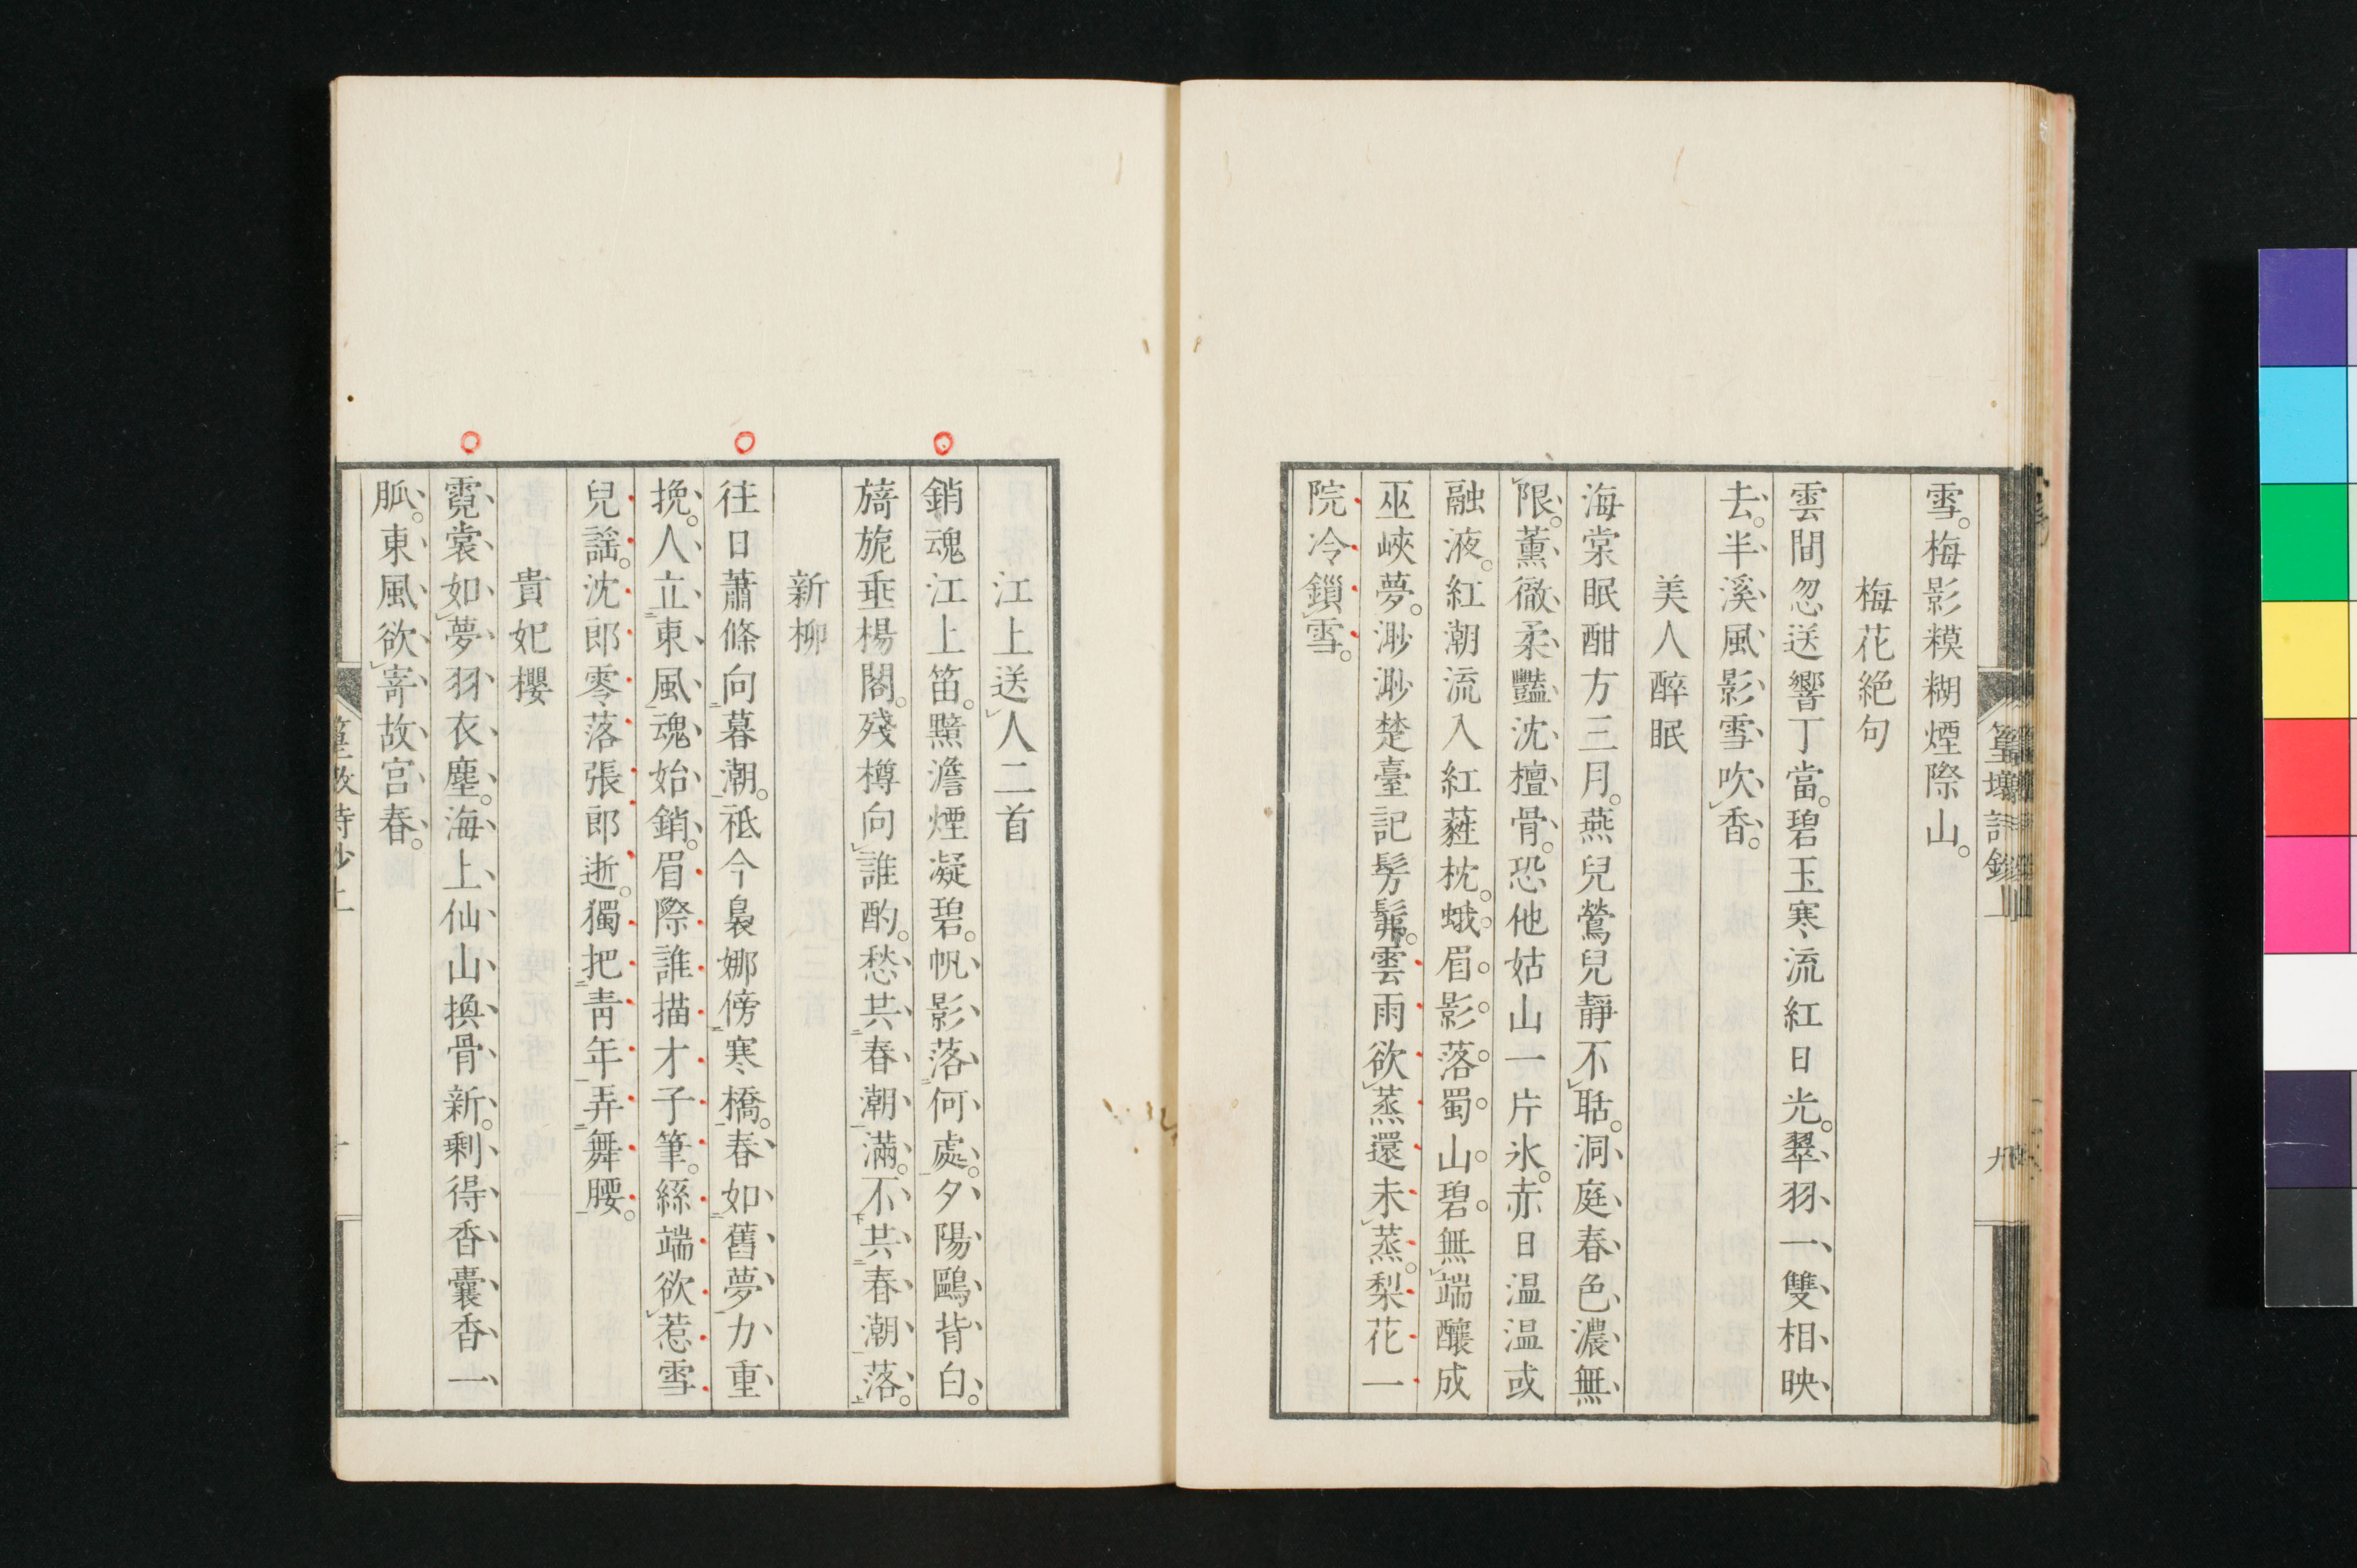 雪。梅影糢糊煙際山。
梅花絶句
雲間忽送響丁當。碧玉寒流紅日光。翠羽一雙相映
去。半溪風影雪吹香。
美人醉眠
海棠眠酣方三月。燕兒鶯兒靜不聒。洞庭春色濃無
限。薰徹柔豔沈檀骨。恐他姑山一片氷。赤日温温或
融液。紅潮流入紅蕤枕。蛾眉影落蜀山碧。無端釀成
巫峽夢。渺渺楚臺記髣髴。雲雨欲蒸還未蒸。梨花一
院冷鎖雪。
九
江上送人二首
銷魂江上笛。黯澹煙凝碧。帆影落何處。夕陽鷗背白。
旖旎垂楊閣。殘樽向誰酌。愁共春潮滿。不共春潮落。
新柳
往日蕭條向暮潮。祇今裊娜傍寒橋。春如舊夢力重
挽。人立東風魂始銷。眉際誰描才子筆。絲端欲惹雪
兒謡。沈郎零落張郎逝。獨把靑年弄舞腰。
貴妃櫻
霓裳如夢羽衣塵。海上仙山換骨新。剩得香囊香一
脈。東風欲寄故宮春。